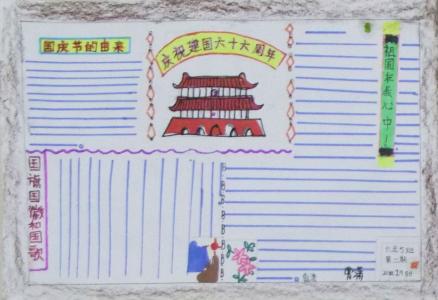 国庆节的由来
庆祝建国六十六周年
祖国在我心中
国旗国徽和国歌